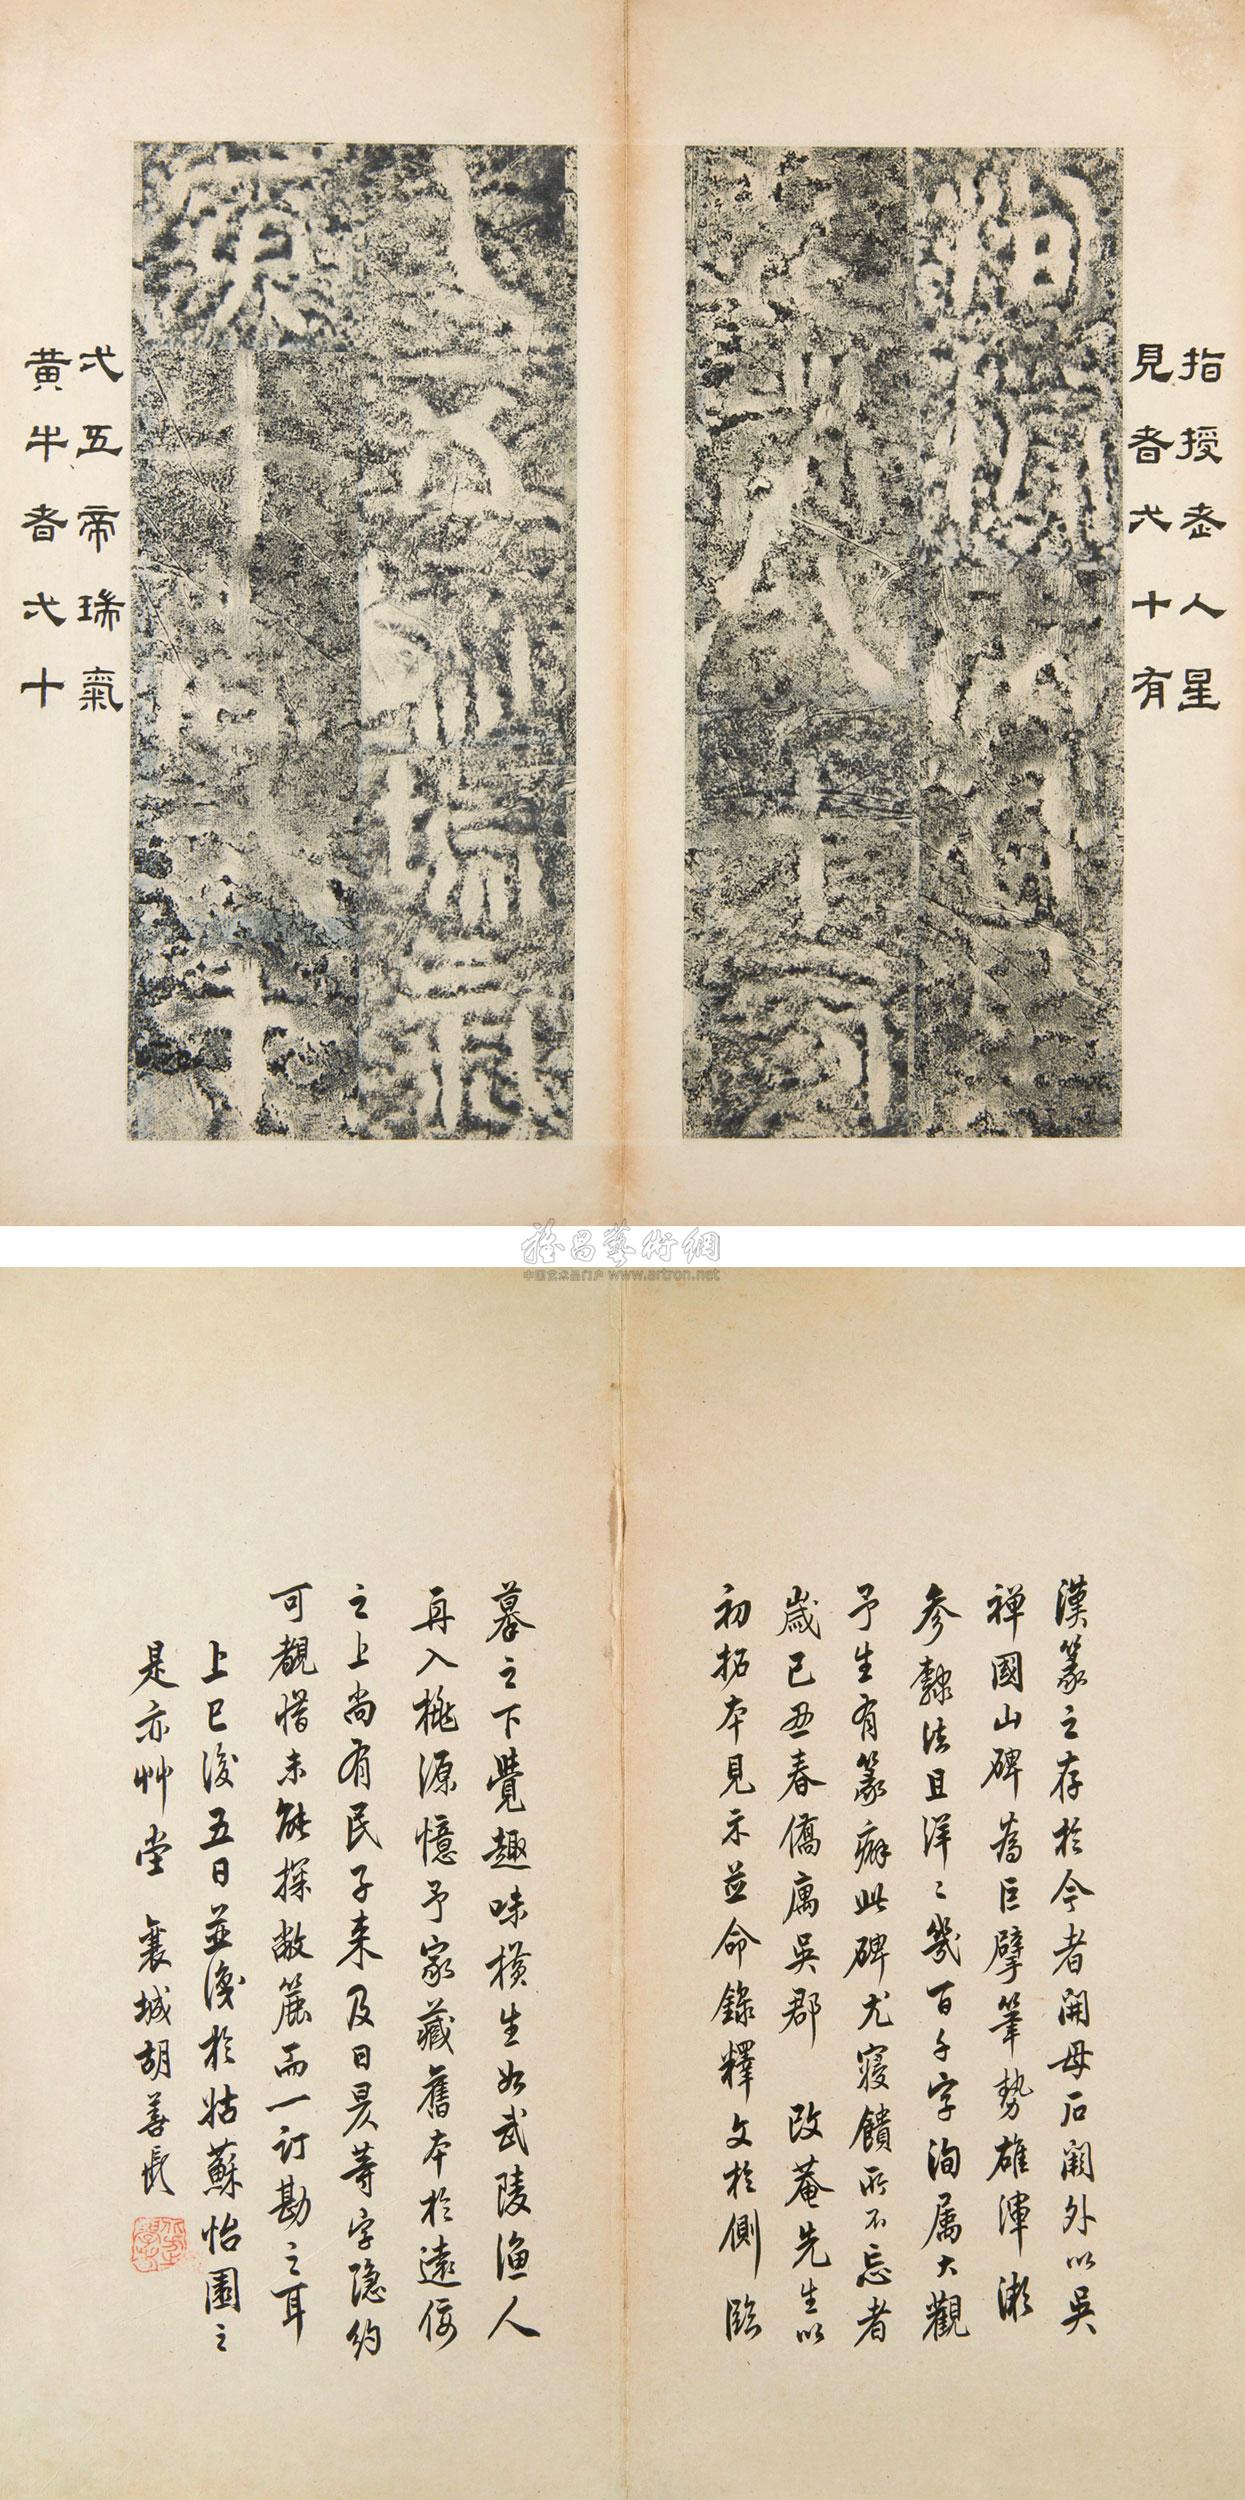 指授老人星
見者弌十有
弌五帝瑞氣
黄牛者弌十
雅昌藝術網
中国艺术品门户 www.artron.net
漢篆之存於今者開母石闕外以吳
禅國山碑為巨擘筆勢雄渾漸
参隸法且洋〻幾百千字洵属大觀
予生有篆癖此碑尤寝饋所不忘者
歲己丑春僑寓吳郡 改菴先生以
初拓本見示並命錄釋文於側臨
摹之下覺趣味横生如武陵漁人
再入桃源憶予家藏舊本於遠佞
之上尚有民子来及日昃等字隐約
可觀惜未能探敝簏而一訂勘之耳
上巳後五日並後於姑蘇怡園之
是亦艸堂 襄城胡義長